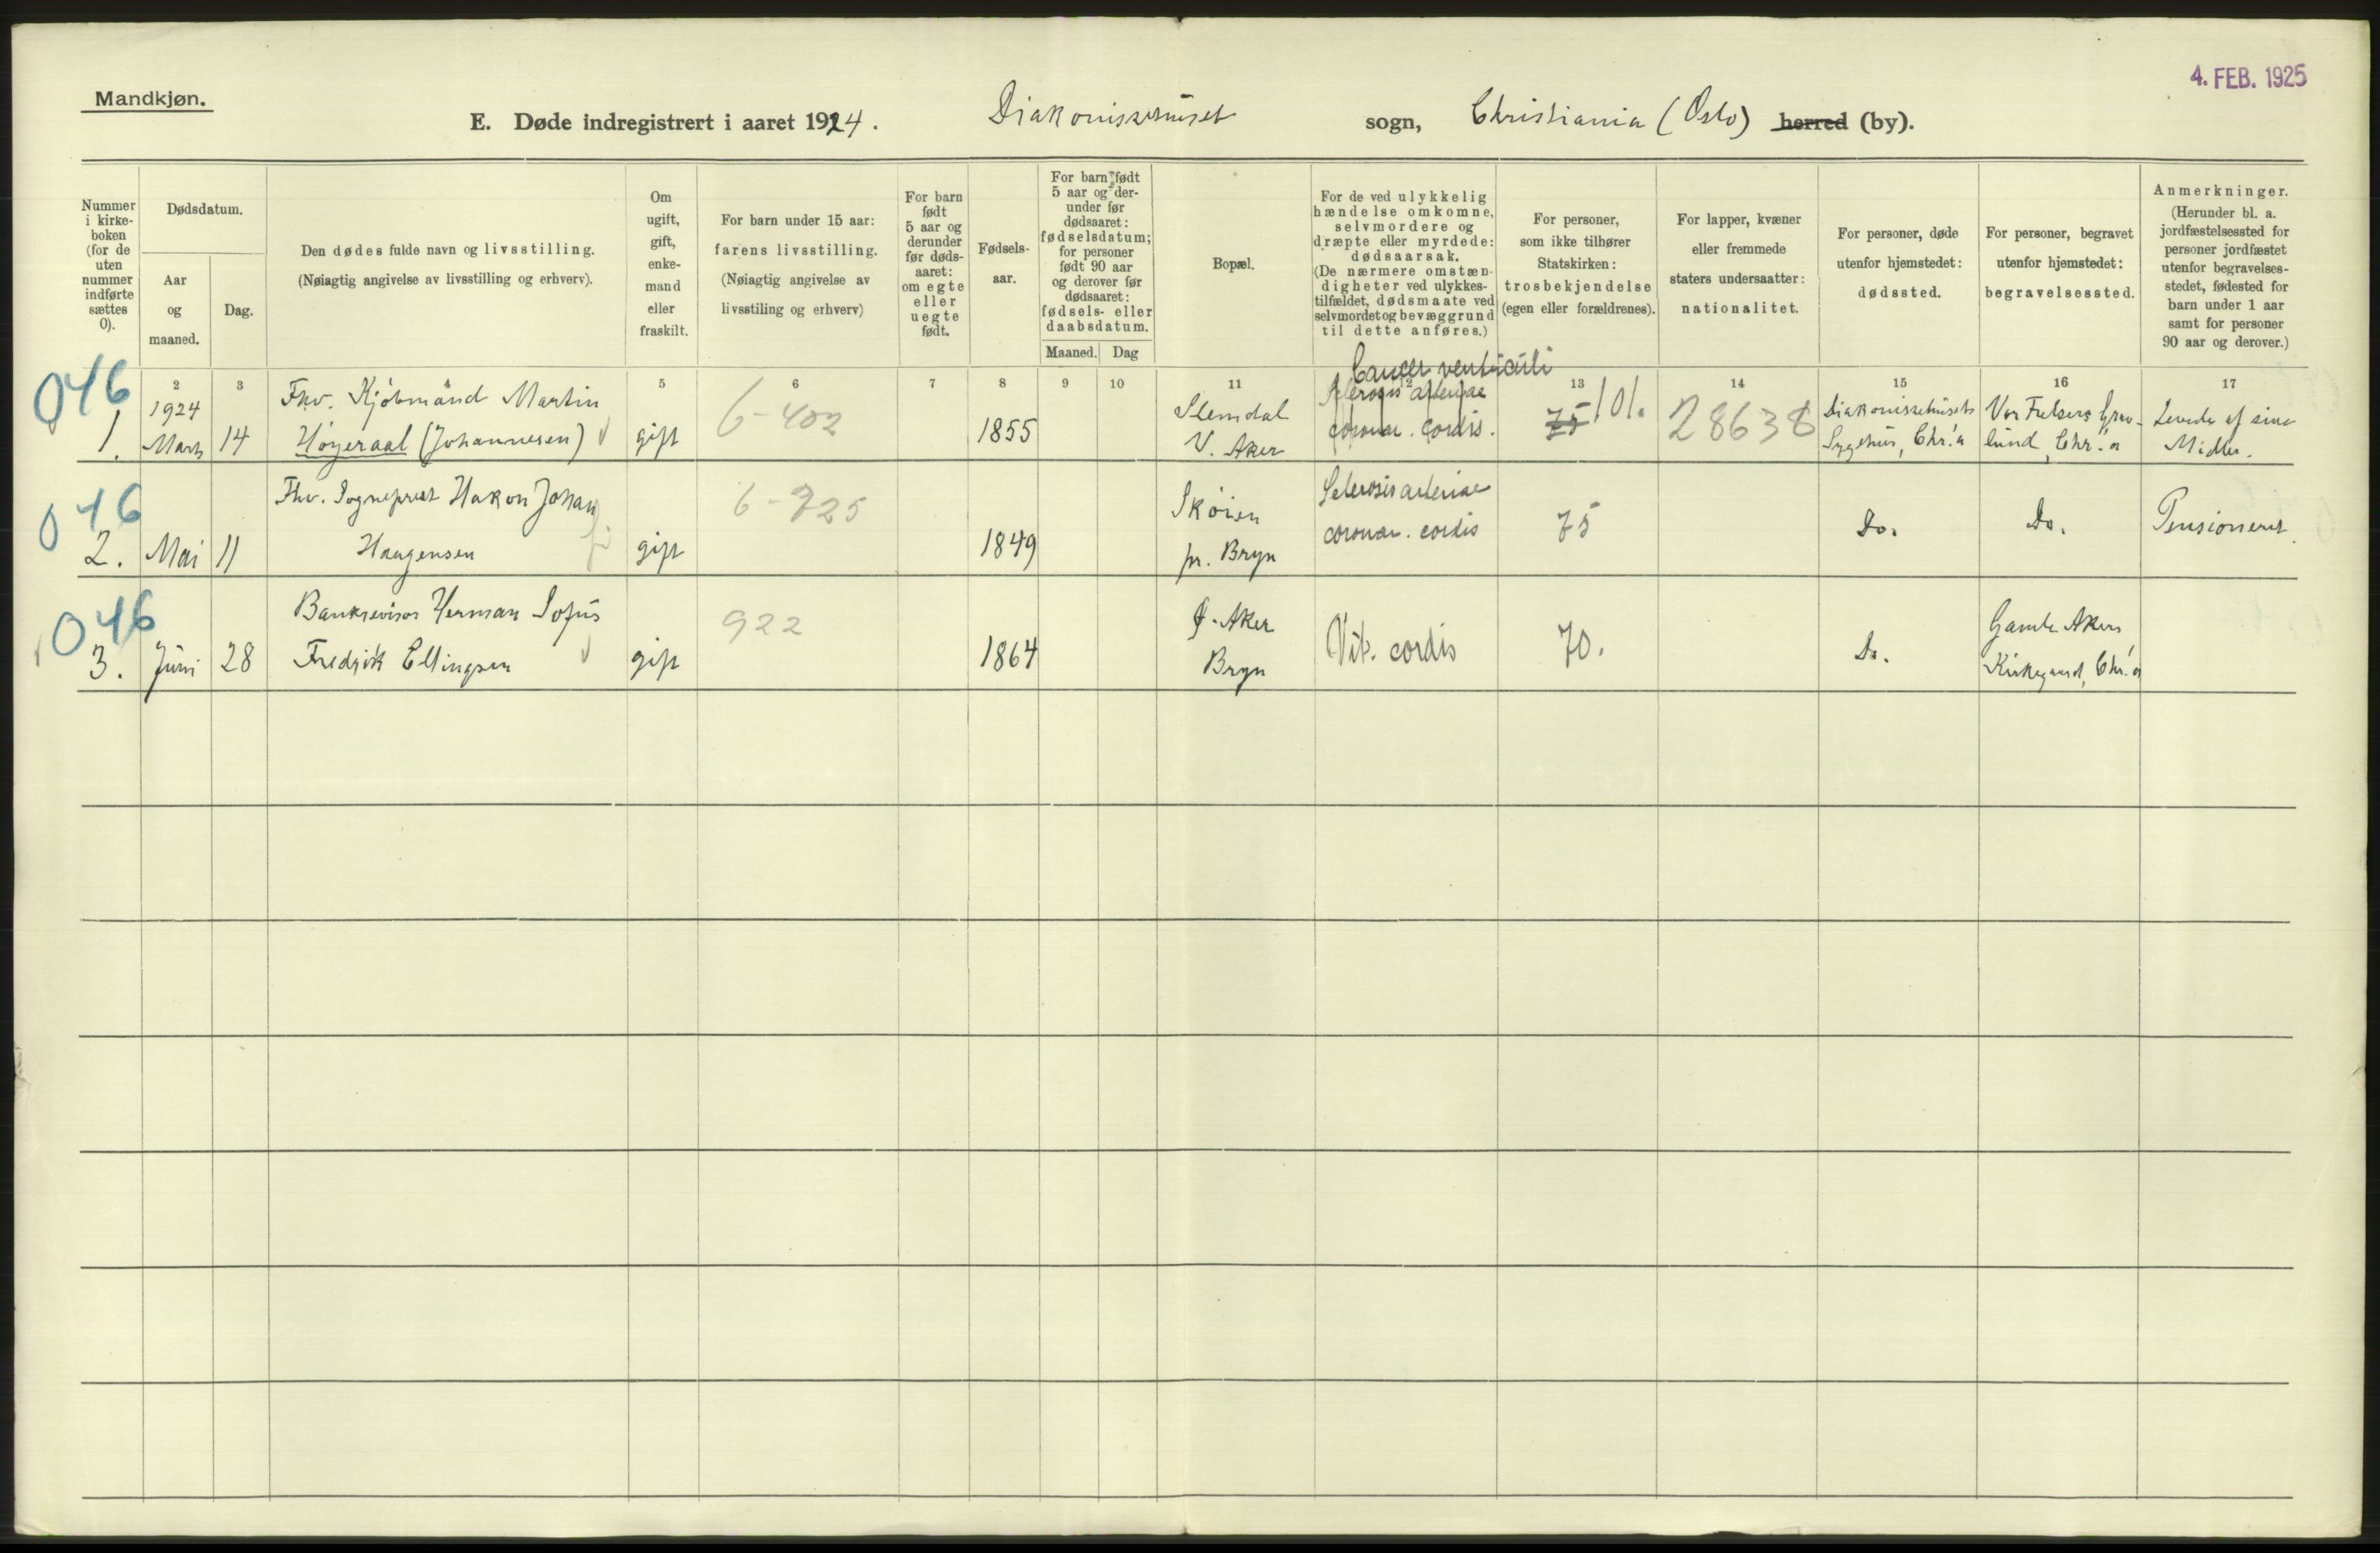 4. FEB. 1925
Mandkjøn.
E. Døde indregistrert i aaret 1924. Diakonissehuset sogn, Christiania (Oslo) herred (by).
Nummer
i kirke-
boken
(for de
uten
nummer
indførte
sættes
0).
Dødsdatum.
Aar
og
maaned.
Dag.
Den dødes fulde navn og livsstilling.
(Nøiagtig angivelse av livsstilling og erhverv).
Om
ugift,
gift,
enke-
mand
eller
fraskilt.
For barn under 15 aar:
farens livsstilling.
(Nøiagtig angivelse av
livsstiling og erhverv)
For barn
født
5 aar og
derunder
før døds-
aaret:
om egte
eller
uegte
født.
Fødsels-
aar.
For barn født
5 aar og der-
under før
dødsaaret:
fødselsdatum;
for personer
født 90 aar
og derover før
dødsaaret:
fødsels- eller
daabsdatum.
Maaned. Dag
Bopæl.
For de ved ulykkelig
hændelse omkomne,
selvmordere og
dræpte eller myrdede:
dødsaarsak.
(De nærmere omstæn-
digheter ved ulykkes-
tilfældet, dødsmaate ved
selvmordet og bevæggrund
til dette anføres.)
For personer,
som ikke tilhører
Statskirken:
trosbekjendelse
(egen eller forældrenes).
For lapper, kvæner
eller fremmede
staters undersaatter:
nationalitet.
For personer, døde
utenfor hjemstedet:
dødssted.
For personer, begravet
utenfor hjemstedet:
begravelsessted.
Anmerkninger.
(Herunder bl. a.
jordfæstelsessted for
personer jordfæstet
utenfor begravelses-
stedet, fødested for
barn under 1 aar
samt for personer
90 aar og derover.)
2 3 4 5 6 7 8 9 10 11 12 13 14 15 16 17
046
1.
1924
Marts
14
Fhv. Kjöbmand Martin
Höyeraal (Johannesen)
gift
6-402
1855
Slemdal
V. Aker
Cancer ventriculi
Sclerosis arteriae
coronar. cordis.
75 101.
28638
Diakonissehusets
Sygehus, Chr.a
Vor Frelsers Grav-
lund, Chr.a
Levede af sine
Midler.
046
2.
Mai
11
Fhv. Sogneprest Hakon Johan
Haagensen
gift
6-725
1849
Sköien
pr. Bryn
Sclerosis arteriae
coronar. cordis
75
Do.
Do.
Pensioneret.
046
3.
Juni
28
Bankrevisor Herman Sofus
Fredrik Ellingsen
gift
922
1864
Ø. Aker
Bryn
Vit. cordis
70.
Do.
Gamle Akers
Kirkegaard, Chr.a